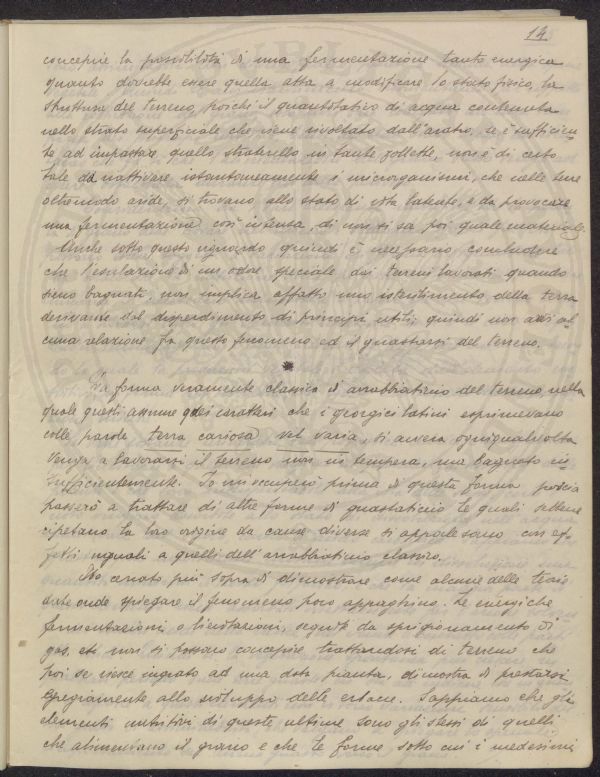 14
concepire la possibilità di una fermentazione tanto energica
quanto dovrebbe essere quella atta a modificare lo stato fisico, la
struttura del terreno, poichè il quantitativo di acqua contenuta
nello strato superficiale che viene rivoltato dall'aratro, se è sufficien-
te ad impastare quello straterello in tante zollette, non è di certo
tale da riattivare istantaneamente i microrganismi, che nelle terre
oltremodo aride, si trovano allo stato di vita latente, e da provocare
una fermentazione così intensa, di non si sa poi quale materiale.
Anche sotto questo riguardo quindi è necessario concludere
che l'esalazione di un odore speciale dai terreni lavorati quando
sieno bagnati, non implica affatto uno isterilimento della terra
derivante dal disperdimento di principi utili; quindi non al-
cuna relazione fra questo fenomeno ed il guastarsi del terreno.
*
La forma veramente classica di arrabbiaticcio del terreno, nella
quale questi assume quei caratteri che i georgici latini esprimevano
colle parole terra cariosa vel varia, si avvera ogniqualvolta
venga a lavorarsi il terreno non in tempera, ma bagnato in-
sufficientemente. Io mi occuperò prima di questa forma poscia
passerò a trattare di altre forme di guastaticcio le quali sebbene
ripetano la loro origine da cause diverse si appalesano con ef-
fetti uguali a quelli dell'arrabbiaticcio classico.
Ho cercato più sopra di dimostrare come alcune delle teorie
date onde spiegare il fenomeno poco appaghino. Le energiche
fermentazioni o lievitazioni, seguite da sprigionamento di
gas, etc non si possono concepire trattandosi di terreno che
poi se riesce ingrato ad una data pianta, dimostra di prestarsi
egregiamente allo sviluppo delle erbacee. Sappiamo che gli
elementi nutritivi di queste ultime sono gli stessi di quelli
che alimentano il grano e che le forme sotto cui i medesimi